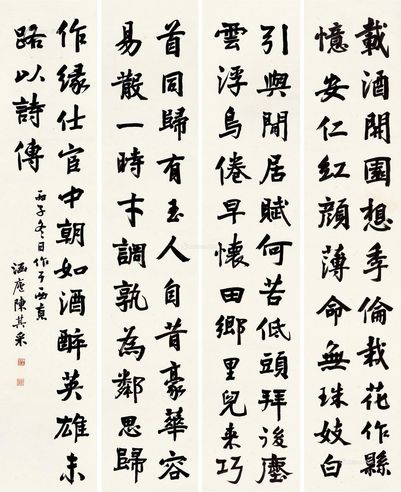 載酒開園想季倫栽花作縣
憶安仁紅顔薄命無珠妓白
引輿閒居賦何苦低頭拜後塵
雲浮鳥倦早懷田鄉里兒来巧
首同歸有玉人自昔豪華容
易散一時才調孰為鄰思歸
作緣仕宦中朝如酒醉英雄末
路以詩傳
丙子冬日作于西京
涵廬陳其采